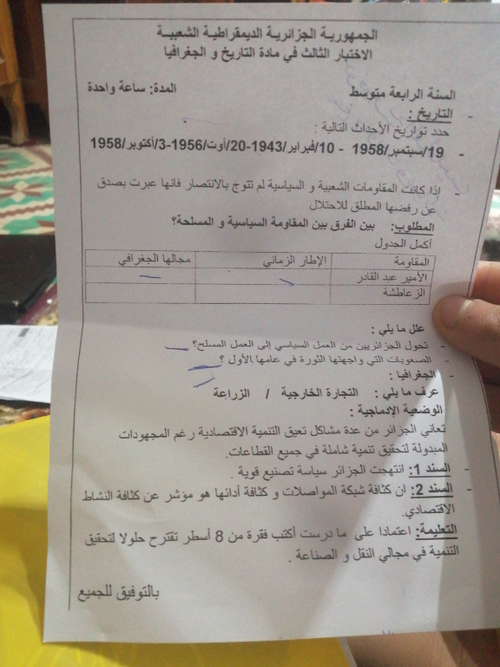 الجمهورية الجزائرية الديمقراطية الشعبية
الاختبار الثالث في مادة التاريخ و الجغرافيا
السنة الرابعة متوسط المدة: ساعة واحدة
- التاريخ :
حدد تواريخ الأحداث التالية :
- 19/سبتمبر/1958 - 10/فبراير/1943-20/أوت/1956-3/أكتوبر/1958
- اذا كانت المقاومات الشعبية و السياسية لم تتوج بالانتصار فانها عبرت بصدق
عن رفضها المطلق للاحتلال
المطلوب: بين الفرق بين المقاومة السياسية و المسلحة؟
أكمل الجدول
المقاومة الإطار الزماني مجالها الجغرافي
الأمير عبد القادر
الزعاطشة
علل ما يلي :
- تحول الجزائريين من العمل السياسي إلى العمل المسلح؟
- الصعوبات التي واجهتها الثورة في عامها الأول ؟
- الجغرافيا :
عرف ما يلي : التجارة الخارجية / الزراعة
الوضعية الإدماجية :
تعاني الجزائر من عدة مشاكل تعيق التنمية الاقتصادية رغم المجهودات
المبذولة لتحقيق تنمية شاملة في جميع القطاعات.
- السند 1: انتهجت الجزائر سياسة تصنيع قوية .
- السند 2: ان كثافة شبكة المواصلات و كثافة أدائها هو مؤشر عن كثافة النشاط
الاقتصادي.
التعليمة: اعتمادا على ما درست أكتب فقرة من 8 أسطر تقترح حلولا لتحقيق
التنمية في مجالي النقل و الصناعة .
بالتوفيق للجميع